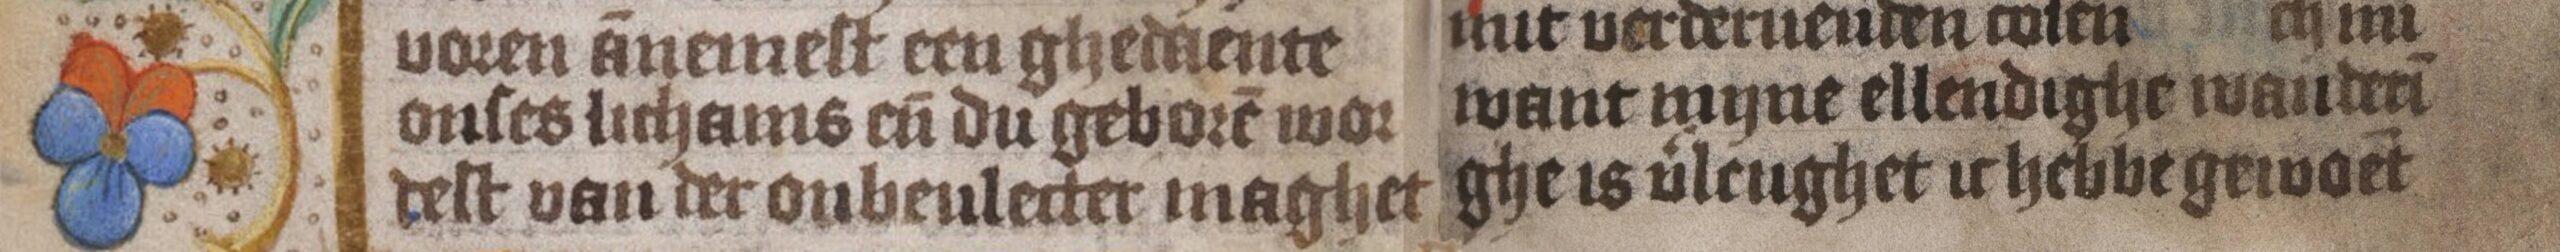 voren an̄emest een ghedaente
onses lichams en̄ du geborē wor
test van der onbeulecter maghet
mit verdernenden colen ch mi
want mijne ellendighe wanderī
ghe is v̄lenghet ic hebbe gewoēt